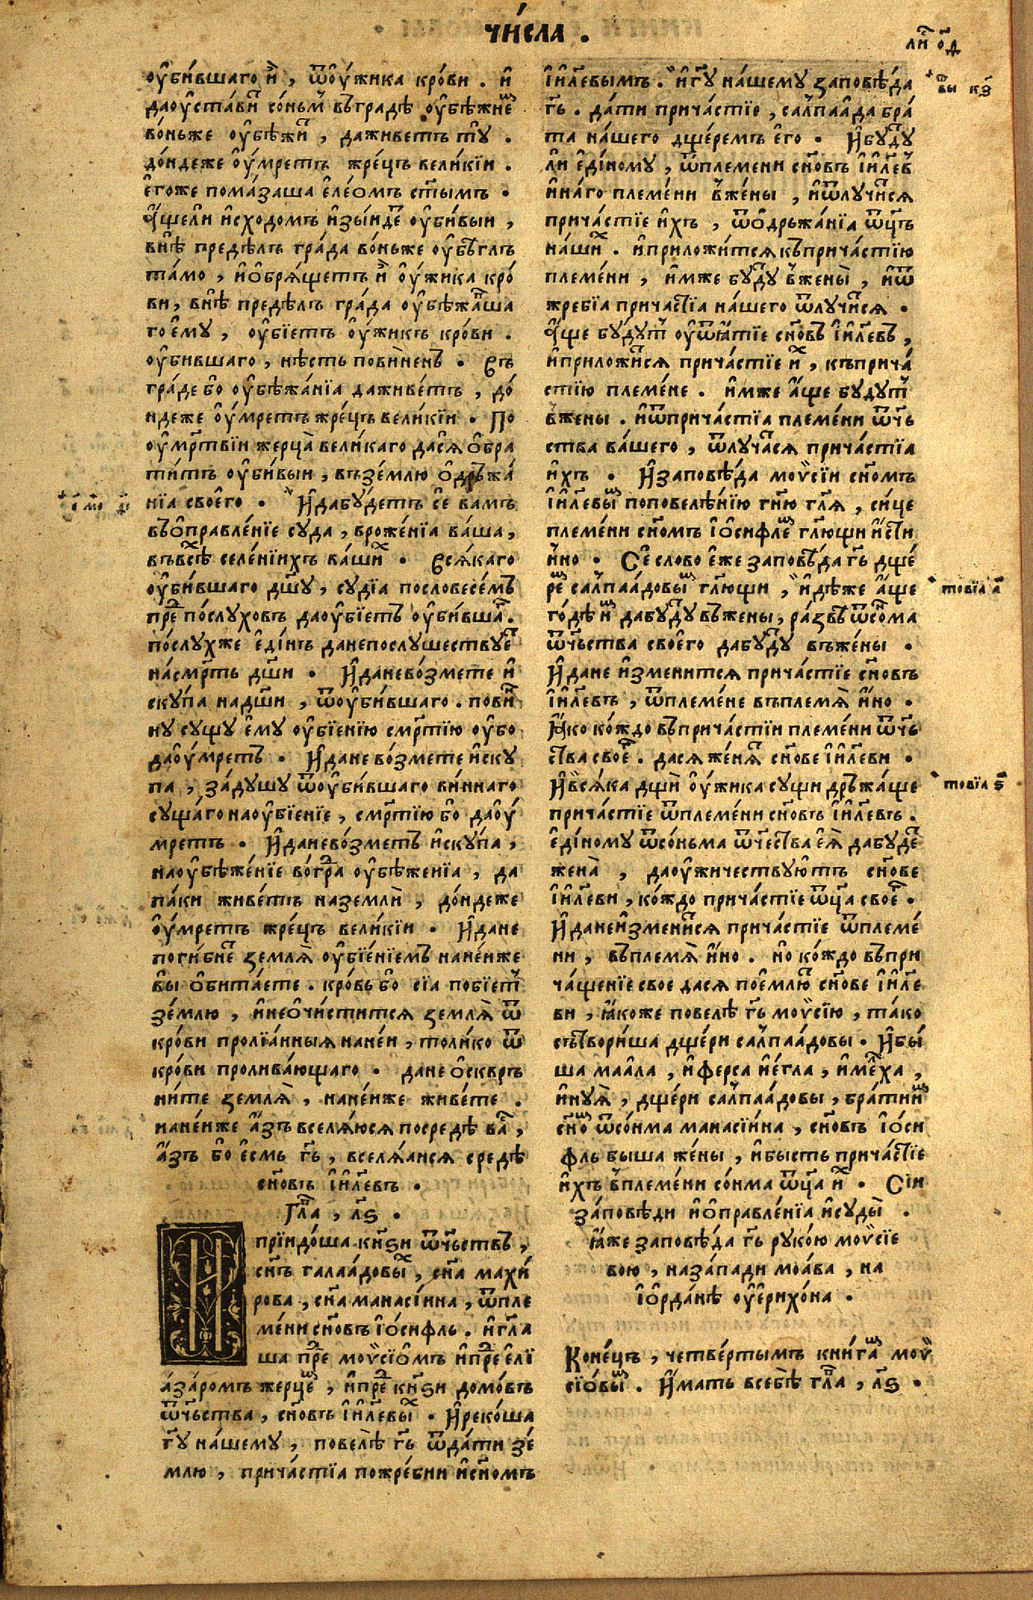 чи́сла .
ли́ ѻ҃д
ѹ҆би́вшаго и҆̀ , ѿѹ҆́жика кро́ви . и҆
даѹ҆ста́ви со́ньмъ въгра́дѣ ѹ҆бѣ́жнѣⷨ
во́ньже ѹ҆бѣжѝ , даживе́тъ тꙋ̀ .
до́ндеже ѹ҆́мретъ жре́цъ вели́кїи .
е҆го́же пома́заша е҆ле́омъ ст҃ы́мъ .
а҆́щели и҆схо́домъ и҆зы́идеⷮ ѹ҆би́выи ,
внѣ̀ предѣ́лъ гра́да во́ньже ѹ҆бѣ́глъ
та́мо , и҆ѻ҆брѧ́щетъ и҆̀ ѹ҆́жика кро́
ви , внѣ̀ предѣ́лъ гра́да ѹ҆бѣжа́вша
го є҆мꙋ , ѹ҆бїе́тъ ѹ҆́жикъ кро́ви .
ѹ҆бившаго , нѣ́сть пови́ненъ . Въ
гра́де бо ѹ҆бѣжа́нїа даживе́тъ , до́
ндеже ѹ҆́мретъ жре́цъ вели́кїи . По
ѹ҆мр҃твїи жерца̀ вели́каго дасѧ ѻ҆бра
ти́тъ ѹ҆би́выи , въземлю ѻ҆дръжа́
нїа своего̀ . И҆дабꙋ́детъ сѐ вамъ
въѡ҆правле́нїе сꙋда̀ , вроже́нїа ва́ша ,
въвсѣ́ⷯ селе́нїихъ ва́шиⷯ . Всѧ́каго
ѹ҆би́вшаго дш҃ꙋ , сꙋдїа̀ пословесе́мъ
преⷣ по́слꙋховъ даѹ҆бїе́тъ ѹ҆би́вшаⷢ .
по́слꙋхже е҆ди́нъ данепослꙋшествꙋ́еⷮ
насм҃рть дш҃и . И҆даневозмете и҆
скꙋ́па надш҃и , ѿѹ҆би́вшаго . пови́н
нꙋ сꙋщꙋ е҆мꙋ̀ ѹ҆бїе́нїю см҃ртїю ѹ҆бо
даѹ҆́мретъ . И҆дане во́змете и҆скꙋ
па , за́дꙋшꙋ ѿѹ҆би́вшаго ви́ннаго
сꙋща́го наѹ҆бїе́нїе , см҃ртїю бо даѹ҆́
мретъ . И҆даневозметъ и҆скꙋ́па ,
наѹ҆бѣже́нїе вогра ѹ҆бѣже́нїа , да
па́ки живе́тъ наземлѝ , до́ндеже
ѹ҆́мретъ жре́цъ вели́кїи . И҆дане
поги́бнеⷮ землѧ̀ ѹ҆бїе́нїемъ нане́иже
вы̀ ѻ҆бита́ете . кро́вь бо̀ сїа побїе́тъ
зе́млю , и҆неѻ҆чи́стится землѧ̀ ѿ
кро́ви пролїа́нныѧ нане́и , толи́ко ѿ
кро́ви пролива́ющаго . дане ѻ҆сквръ
ни́те землѧ̀ , нане́иже живе́те .
нане́иже а҆́зъ вселѧ́юсѧ посредѣ̀ ваⷭ ,
а҆́зъ бо̀ е҆́смь гь҃ , вселѧ́аисѧ средѣ̀
сн҃овъ і҆и҃левъ .
Глⷡ҇а , лѕ .
И҆прїидо́ша кнѧ҃зи ѿч҃ьствъ ,
сн҃ъ галаа́довыⷯ , сн҃а махи́
рова , сн҃а манасі́ина , ѿпле
ме́ни сн҃овъ і҆ѻ́сифль . и҆гл҃а
ша преⷣ моѵ҆сїо́мъ и҆преⷣ е҆лї
аза́ромъ жерцеⷨ , и҆преⷣ кнѧ҃зи домо́въ
ѿч҃ьства , сн҃овъ і҆и҃левыⷯ . И҆реко́ша
гдꙋ҃ на́шемꙋ , повелѣ̀ гь҃ ѿда́ти зе́
млю , прича́стїа пожре́бии и҆сн҃омъ
і҆и҃левымъ . и҆гдꙋ҃ на́шемꙋ заповѣ́да
гь҃ . да́ти прича́стїе , салпаа́да бра́
та на́шего дщеремъ е҆го̀ . И҆бꙋдꙋⷮ
ли е҆ди́номꙋ , ѿплемени сн҃овъ і҆и҃левъ
и҆на́го племе́ни вже́ны , и҆ѿлꙋчи́сѧ
прича́стїе и҆́хъ , ѿѻ҆дръжа́нїа ѿц҃ъ
на́шиⷯ . и҆приложи́тсѧ къприча́стїю
племе́ни , и҆́мже бꙋ́дꙋ вжены̀ , и҆ѿ
жре́бїа прича́стїа на́шего ѿлꙋчи́сѧ .
а҆́ще бꙋдꙋтъ ѹ҆ѿѧ́тїе сн҃овъ і҆и҃левъ ,
и҆приложи́сѧ прича́стїе иⷯ , къприча́
стїю племе́не . и҆́мже а҆́ще бꙋдꙋтъ
вжены . и҆ѿприча́стїа племе́ни ѿч҃ь
ства ва́шего , ѿлꙋча́сѧ прича́стїа
и҆́хъ . И҆заповѣ́да моѵ҆сі́и сн҃омъ
і҆и҃левыⷨ поповелѣ́нїю гн҃ю гл҃ѧ , си́це
племени сн҃омъ і҆ѻ́сифлеⷨ гл҃ющи и҆́сти
нно . Сѐ сло́во е҆же заповѣ́да гь҃ дще
реⷨ салпаа́довыⷨ гл҃ющи , и҆дѣ́же а҆ще
го́дѣ и҆́мъ дабꙋдꙋ въжены , ра́звѣ ѿсо́ма
ѿч҃ьства своего̀ дабꙋдꙋ въже́ны .
И҆дане и҆змени́тсѧ прича́стїе сн҃овъ
і҆и҃левъ , ѿпле́мене въплемѧ̀ и҆́но .
Ѧ҆́ко ко́ждо въприча́стїи племе́ни ѿч҃ь
ства своеⷢ . дасѧ же́нѧⷮ сн҃ове і҆и҃леви .
И҆всѧ́ка дщи ѹ҆́жика сꙋщи дръжа́ще
прича́стїе ѿплемени сн҃овъ і҆и҃левъ .
е҆ди́номꙋ ѿсо́ньма ѿч҃ества е҆ѧ̀ дабꙋдеⷮ
жена̀ , даѹ҆жи́чествꙋютъ сн҃ове
і҆и҃леви , ко́ждо прича́стїе ѿц҃а своеⷢ .
И҆данеизмени́сѧ прича́стїе ѿплеме́
ни , въплемѧ̀ и҆́но . но ко́ждо въпри
чаще́нїе свое дасѧ пое́млюⷮ сн҃ове і҆и҃ле
ви , ꙗ҆́коже повелѣ̀ гь҃ моѵ҆сі́ю , та́ко
сътвори́ша дще́ри салпаа́довы . И҆бы́
ша маа́ла , и҆ ферса и҆е́гла , и҆ме́лха ,
и҆нꙋѧ̀ , дще́ри салпаа́довы , бра́тиⷨ
сн҃оⷨ ѿсо́нма манасі́ина , сн҃овъ і҆ѻ́си
фль быша же́ны , и҆бысть прича́стїе
и҆́хъ вплеме́ни со́нма ѿц҃а иⷯ . Сі́и
за́повѣди и҆ѻправле́нїа и҆сꙋды̀ .
ꙗ҆́же заповѣ́да гь҃ рꙋко́ю моѵ҆сіе
вою , наза́пади моа́ва , на
і҆ѻрда́нѣ ѹ҆е҆рихо́на .
Коне́цъ , четве́ртымъ кни́гаⷨ моѵ҆
сіѻвыⷨ . и҆́мать всебѣ̀ глⷡ҇а , лѕ .
товїа а҃
товїа ѕ҃